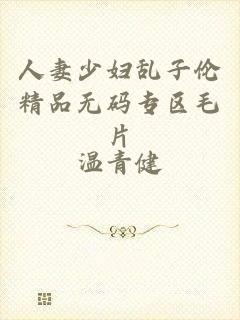 人妻少妇乱子伦
精品无码专区毛
片
温青健